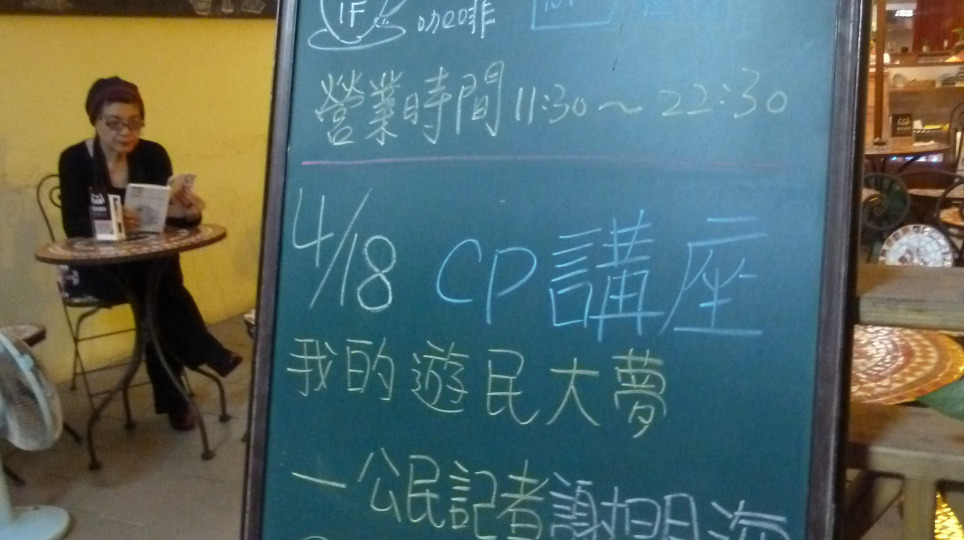 IF 咖啡
營業時間 11:30～22:30
4/18 CP講座
我的遊民大夢
一公民記者謝